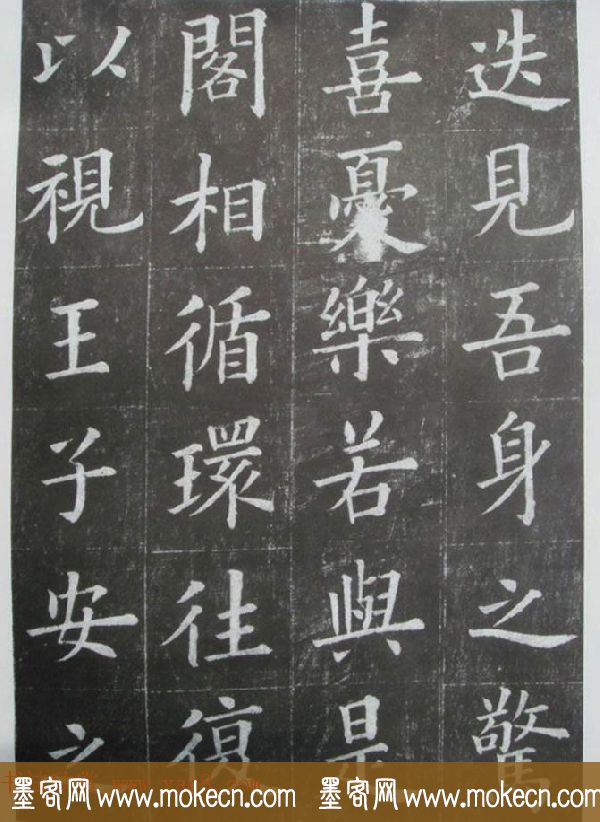 迭見吾身之驚
喜憂樂若與是
閣相循環往復
以視王子安之
墨客网 www.mokecn.com 墨客网 www.mokecn.com